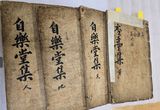 堂集
自樂堂集 天
自樂堂集 地
自樂堂集 人